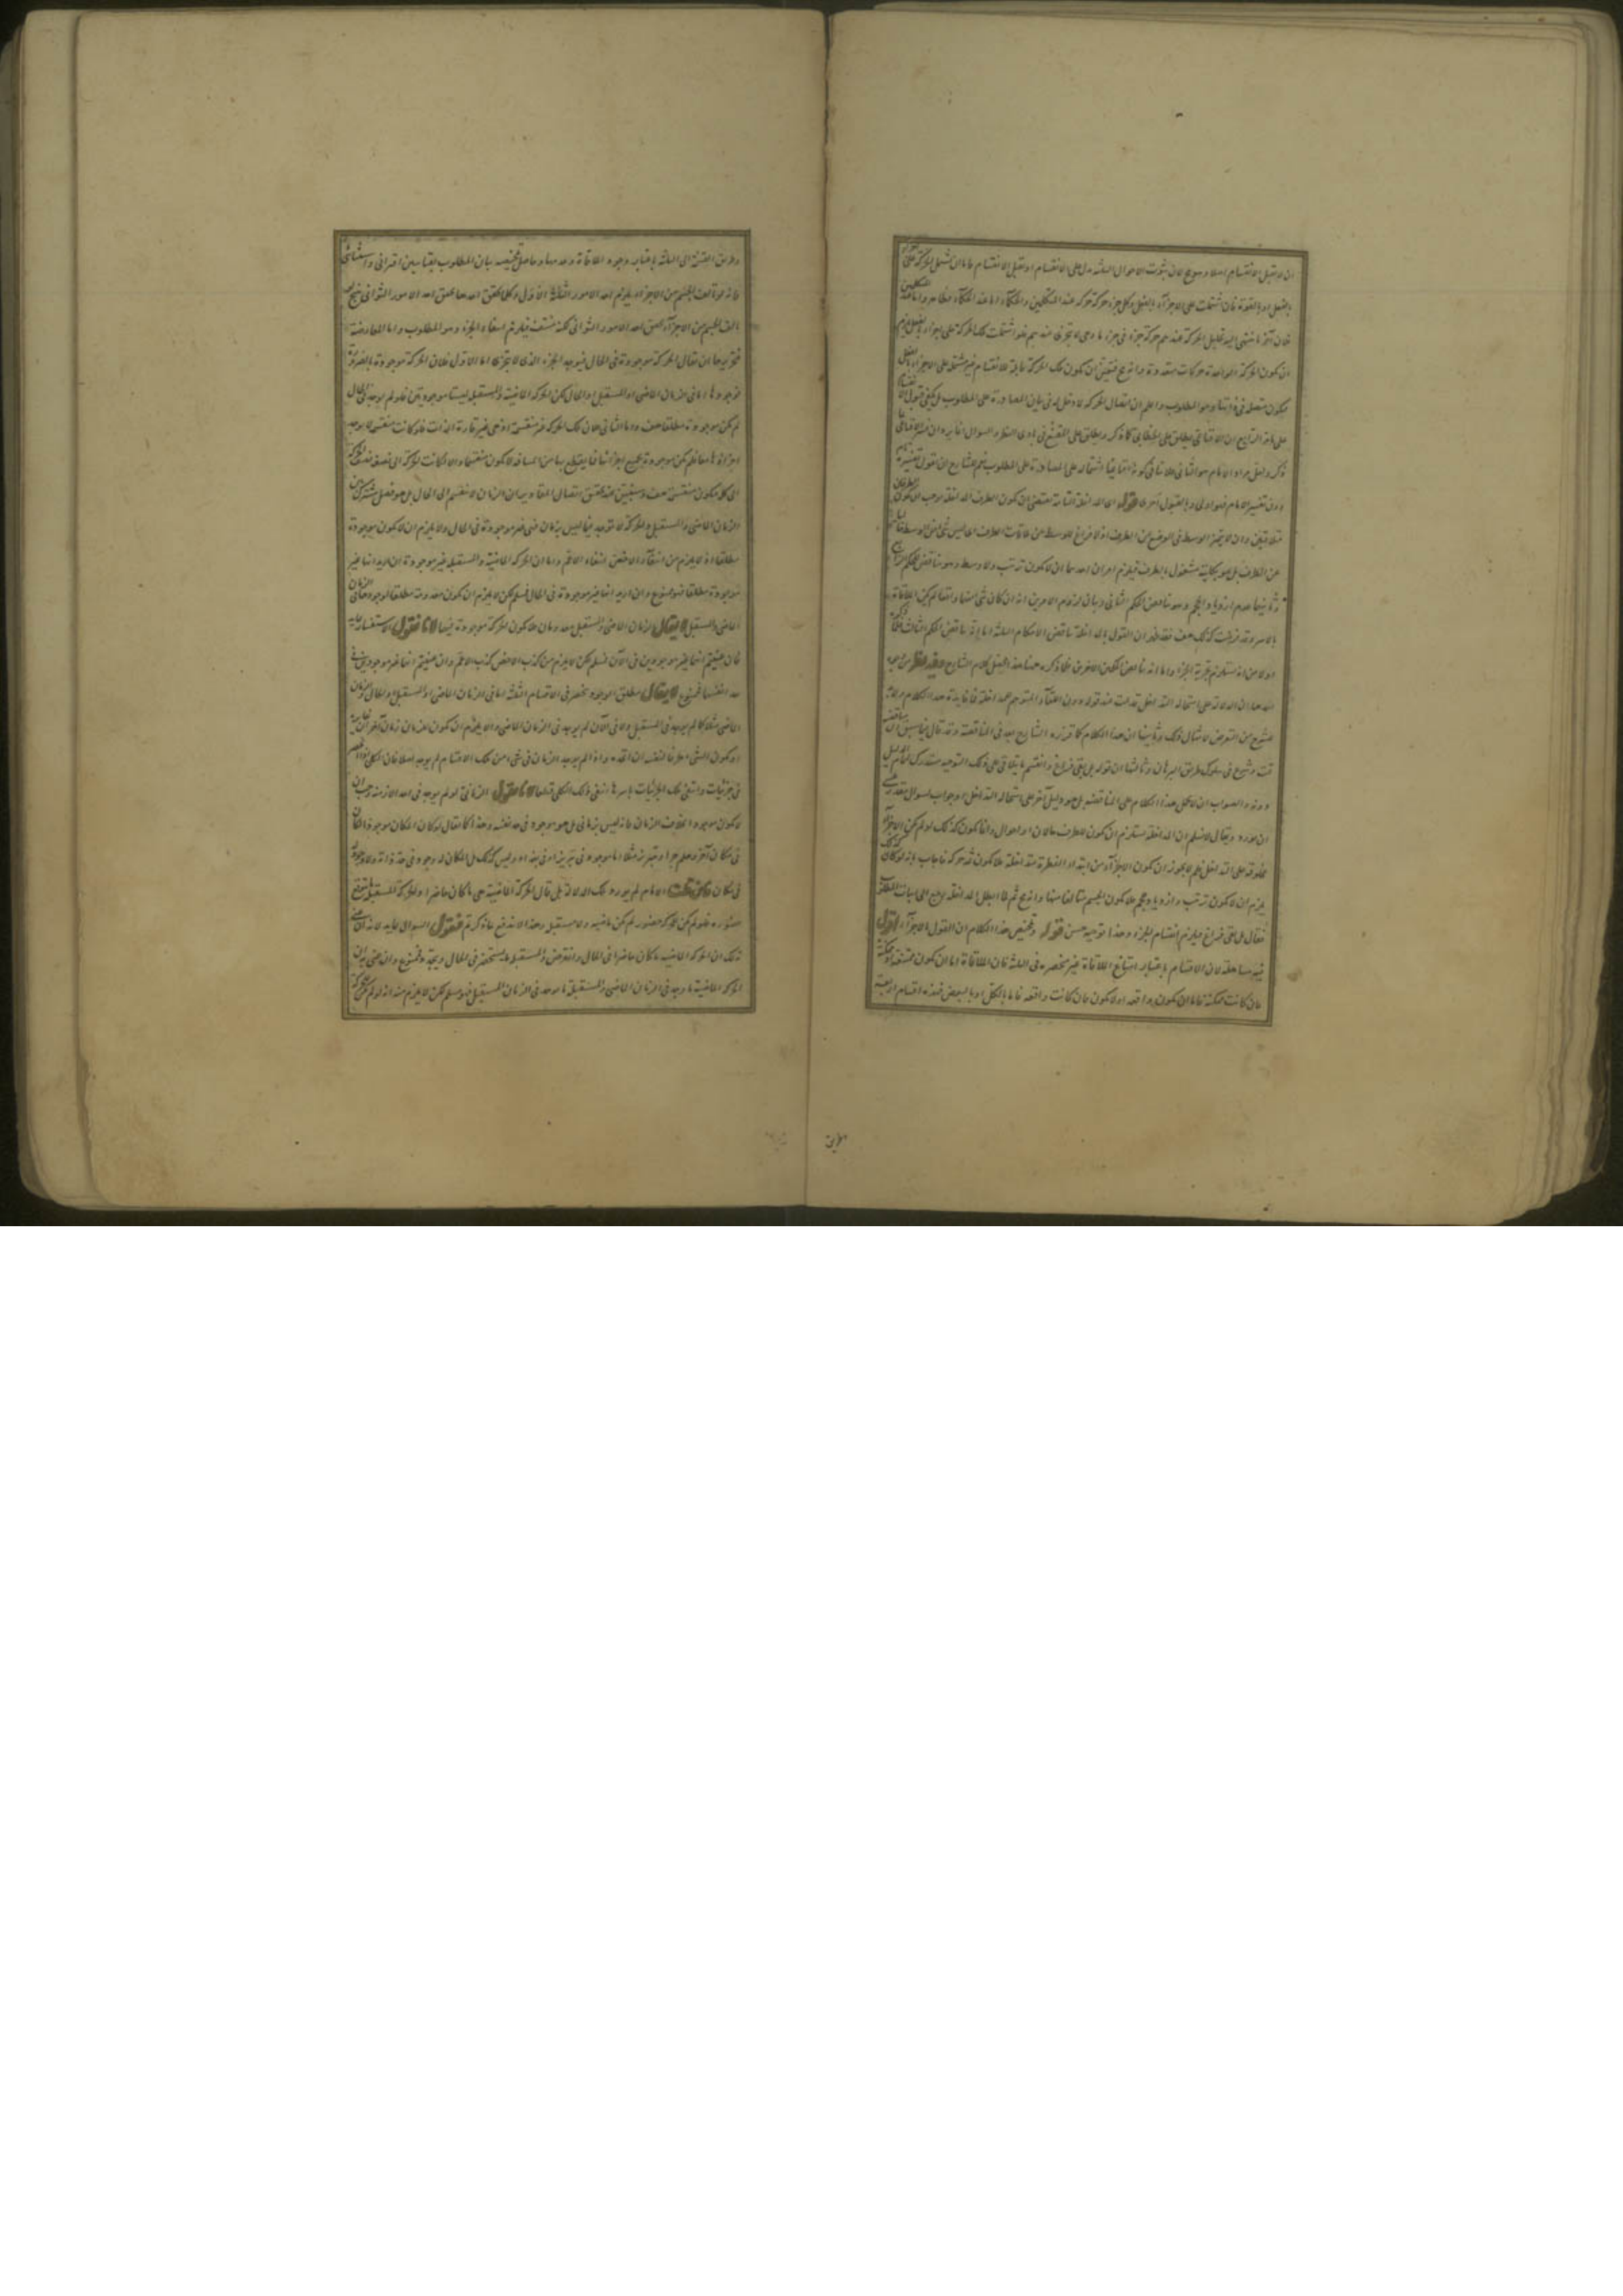 ان لا يقبل الانقسام اصلا وهو مح لان ثبوت الاحوال الثلثة يدل على الانقسام او يقبل الانقسام فاما ان يشتمل الحركة على اجزاء
بالفعل او بالقوة فان اشتملت على الاجزاء بالفعل وكل جزء حركة حركة عند المتكلمين والحكماء اما عند الحكماء فظاهر واما عند المتكلمين
فان آخر ما ينتهى اليه تحليل الحركة عندهم حركة جزء فى جزء ما وهى لا تتجزى عندهم فلو اشتملت تلك الحركة على اجزاء بالفعل يلزم
ان يكون الحركة الواحدة حركات متعددة وانه مح فتعين ان يكون تلك الحركة قابلة للانقسام غير مشتملة على الاجزاء بالفعل
فيكون متصلة فى ذاتها وهو المطلوب واعلم ان اتصال الحركة لا دخل له فى بيان المصادرة على المطلوب بل يكفى قبول الانقسام
على ان الاقناعى يطلق على الخطابى كما ذكره ويطلق على المقنع فى بادى النظر والسوال انما يرد ان فسر الاقناعى بما
ذكر ولعل مراد الامام هو الثانى فلا ينافى كونه اقناعيا اشتماله على المصادرة على المطلوب نعم للشارح ان يقول تفسيره
دون تفسير الامام فهو اولى وبالقبول احرى قوله اى المداخلة التامة تقتضى ان يكون الطرف المداخلة يوجب ان يكون الطرفان
متلاقيين وان لا يتميز الوسط فى الوضع عن الطرف اذ لا فراغ للوسط عن ملاقاة الطرف اى ليس شئ من الوسط فارغا
عن الطرف بل هو بكليته مشغول بالطرف فيلزم امران احدهما ان لا يكون ترتيب ولا وسط وهو يناقض الحكم الرابع
وثانيهما عدم ازدياد الحجم وهو يناقض الحكم الثانى وبيان لزوم الامرين انه ان كان شئ منهما واقعا لم يكن الملاقاة
بالاسر وقد فرضت كذلك هف فقد ظهر ان القول بالمداخلة يناقض الاحكام الثلثة اما انه يناقض الحكم الثالث فلما ذكره
اولا من انه يستلزم تجزية الجزء واما انه يناقض الحكمين الاخرين فلما ذكره هنا هذا تحصيل كلام الشارح وفيه نظر من وجوه
احدها ان الدلالة على استحالة التداخل قد تمت عند قوله دون اللقاء المتوهم للمداخلة فاى فايدة لهذا الكلام
للشرح من التعرض لامثال ذلك وثانيها ان هذا الكلام كما قرره الشارح ايضا فى المناقضة وقد قال فيما سبق
تمت وشرع فى سلوك طريق البرهان وثالثها ان قوله بل بقى فراغ وانقسم ما يتلاقى على ذلك التوجيه مستدرك لتمام الدليل
دونه والصواب ان لا يحمل هذا الكلام على المناقضة بل هو دليل آخر على استحالة التداخل او جواب لسوال مقدر
ان يورد ويقال لا نسلم ان المداخلة يستلزم ان يكون للطرف حالان او احوال وانما يكون كذلك لو لم يكن الاجزاء
مخلوقة على التداخل فلم لا يجوز ان يكون الاجزاء من ابتداء الفطرة متداخلة فلا يكون ثمه حركة فاجاب بانه لو كان كذلك
يلزم ان لا يكون ترتيب وازدياد حجم فلا يكون الجسم متالفا منها وانه مح ثم لما ابطل المداخلة رجع الى بيان المطلوب
فقال بل بقى فراغ فيلزم انقسام الجزء وهذا توجيه حسن قوله وتلخيص هذا الكلام ان القول بالاجزاء اقول
فيه مساهلة لان الاقسام باعتبار امتناع الملاقاة غير منحصرة فى الثلثة فان الملاقاة اما ان يكون ممتنعة او ممكنة
فان كانت ممكنة فاما ان يكون واقعة او لا يكون فان كانت واقعة فاما بالكل او بالبعض فهذه اقسام اربعة
وطريق القسمة الى الثلثة باعتبار وجود الملاقاة وعدمها وحاصل تلخيصه بيان المطلوب بقياسين اقترانى واستثنائى
فانه لو تالف الجسم من الاجزاء يلزم احد الامور الثلثة الاول وكلما تحقق احدها تحقق احد الامور الثوانى ينتج لو
تالف الجسم من الاجزاء تحقق احد الامور الثوانى لكنه منتف فيلزم انتفاء الجزء وهو المطلوب واما المعارضة
فتحريرها ان يقال الحركة موجودة فى الحال فيوجد الجزء الذى لا يتجزى اما الاول فلان الحركة موجودة بالضرورة
فوجودها اما فى الزمان الماضى او المستقبل او الحال لكن الحركة الماضية والمستقبلة ليستا موجودتين فلو لم يوجد فى الحال
لم يكن موجودة مطلقا هف واما الثانى فلان تلك الحركة غير منقسمة اذ هى غير قارة الذات فلو كانت منقسمة لا يوجد
اجزاؤها معا فلم يكن موجودة بجميع اجزائها فما يقطع بها من المسافة لا يكون منقسما والا لكانت الحركة الى نصفه نصف الحركة
الى كله فيكون منقسمة هف وسنبين عند تحقيق اتصال المقادير ان الزمان لا ينقسم الى الحال بل هو فصل مشترك بين
الزمان الماضى والمستقبل والحركة لا توجد فيما ليس بزمان فهى غير موجودة فى الحال ولا يلزم ان لا يكون موجودة
مطلقا اذ لا يلزم من انتفاء الاخص انتفاء الاعم واما ان الحركة الماضية والمستقبلة غير موجودة ان اريد انها غير
موجودة مطلقا فهو ممنوع وان اريد انها غير موجودة فى الحال فمسلم لكن لا يلزم ان يكون معدومة مطلقا لوجودها فى الزمان
الماضى والمستقبل لا يقال الزمان الماضى والمستقبل معدومان فلا يكون الحركة موجودة فيهما لانا نقول الاستفسار عايد
فان عنيتم انهما غير موجودين فى الآن فمسلم لكن لا يلزم من كذب الاخص كذب الاعم وان عنيتم انهما غير موجودين فى
حد انفسهما فممنوع لا يقال مطلق الوجود منحصر فى الاقسام الثلثة اما فى الزمان الماضى او المستقبل او الحال والزمان
الماضى مثلا كما لم يوجد فى المستقبل ولا فى الآن لم يوجد فى الزمان الماضى والا يلزم ان يكون للزمان زمان آخر
او يكون الشئ ظرفا لنفسه ان اتحد واذا لم يوجد الزمان فى شئ من تلك الاقسام لم يوجد اصلا فان الكلى لو انحصر
فى جزئيات وانتفى تلك الجزئيات باسرها انتفى ذلك الكلى قطعا لانا نقول الزمانى لو لم يوجد فى احد الازمنة وجب ان
لا يكون موجودا بخلاف الزمان فانه ليس بزمانى بل هو موجود فى حد نفسه وهذا كما يقال لو كان المكان موجودا لكان
فى مكان آخر وهلم جرا او تميز ز مثلا اما موجود فى تبريز او فى بغداد وليس كذلك بل المكان له وجود فى حد ذاته ولا وجود له
فى مكان فان قلت الامام لم يورد تلك الدلالة بل قال الحركة الماضية هى ما كان حاضرا والحركة المستقبلة ما يتوقع
حضوره فلو لم يكن للحركة حضور لم يكن ماضية ولا مستقبلة وهذا لا يندفع بما ذكرتم فنقول السوال عايد لانه ان عنى
بذلك ان الحركة الماضية ما كان حاضرا فى الحال وانقرض والمستقبلة ما يستحضر فى الحال ويتجدد فممنوع وان عنى به ان
الحركة الماضية ما وجد فى الزمان الماضى والمستقبلة ما يوجد فى الزمان المستقبل فهو مسلم لكن لا يلزم منه انه لو لم يكن للحركة